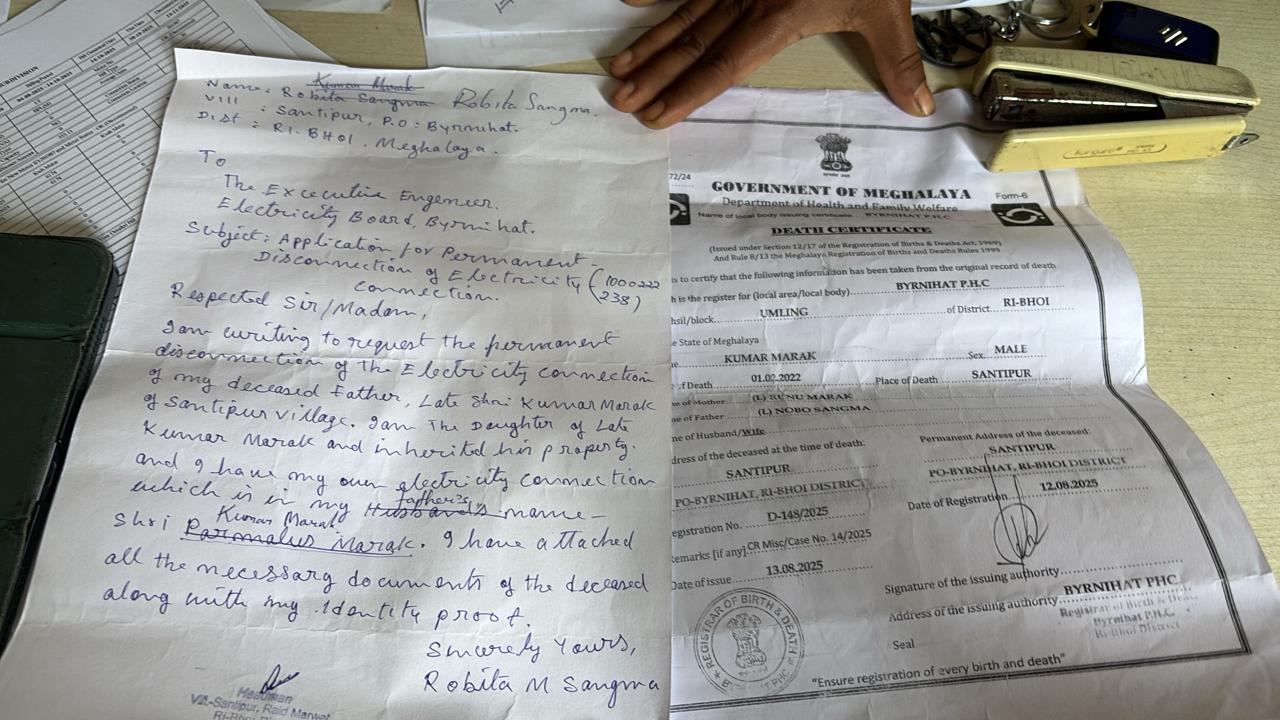 Kumar Marak
Name: Robita Sangma Robita Sangma.
Vill : Santipur, P.O: Byrnihat.
Dist : RI-BHOI. Meghalaya.
To
The Excecutive Engeneer.
Electricity Board, Byrnihat.
Subject: Application for Permanent-
Disconnection of Electricity (1000222
connection. 238)
Respected Sir/Madam,
I am writing to request the permanent
disconnection of The Electricity connection
of my deceased Father, Late Shri Kumar Marak
of Santipur village. I am The Daughter of Late
Kumar Marak and inherited his property.
and I have my own electricity connection
father's
which is in my Husband's name-
Kumar Marak
Shri Marak. I have attached
all the necessary documents of the deceased
along with my Identity proof.
Sincerely Yours,
Robita M Sangma
Headman
Vill-Santipur, Raid Marwat
Ri-Bhoi
72/24
GOVERNMENT OF MEGHALAYA
Form-6
Department of Health and Family Welfare
Name of local body issuing certificate BYRNIHAT P.H.C
DEATH CERTIFICATE
(Issued under Section 12/17 of the Registration of Births & Deaths Act, 1969)
And Rule 8/13 the Meghalaya Registration of Births and Deaths Rules 1999
is to certify that the following information has been taken from the original record of death
h is the register for (local area/local body) BYRNIHAT P.H.C
hsil/block. UMLING of District. RI-BHOI
e State of Meghalaya
KUMAR MARAK Sex MALE
of Death 01.02.2022 Place of Death SANTIPUR
e of Mother (L) RUNU MARAK
me of Father (L) NOBO SANGMA
ne of Husband/Wife
dress of the deceased at the time of death: Permanent Address of the deceased:
SANTIPUR SANTIPUR
PO-BYRNIHAT, RI-BHOI DISTRICT PO-BYRNIHAT, RI-BHOI DISTRICT
egistration No. D-148/2025 Date of Registration 12.08.2025
emarks [if any] CR Misc/Case No. 14/2025
Date of issue 13.08.2025
Signature of the issuing authority
Address of the issuing authority BYRNIHAT PHC
Registrar of Birth &
Byrnihat P.H.C.
Ri-Bhoi District
Seal
REGISTRAR OF BIRTH & DEATH
"Ensure registration of every birth and death"
kangaro